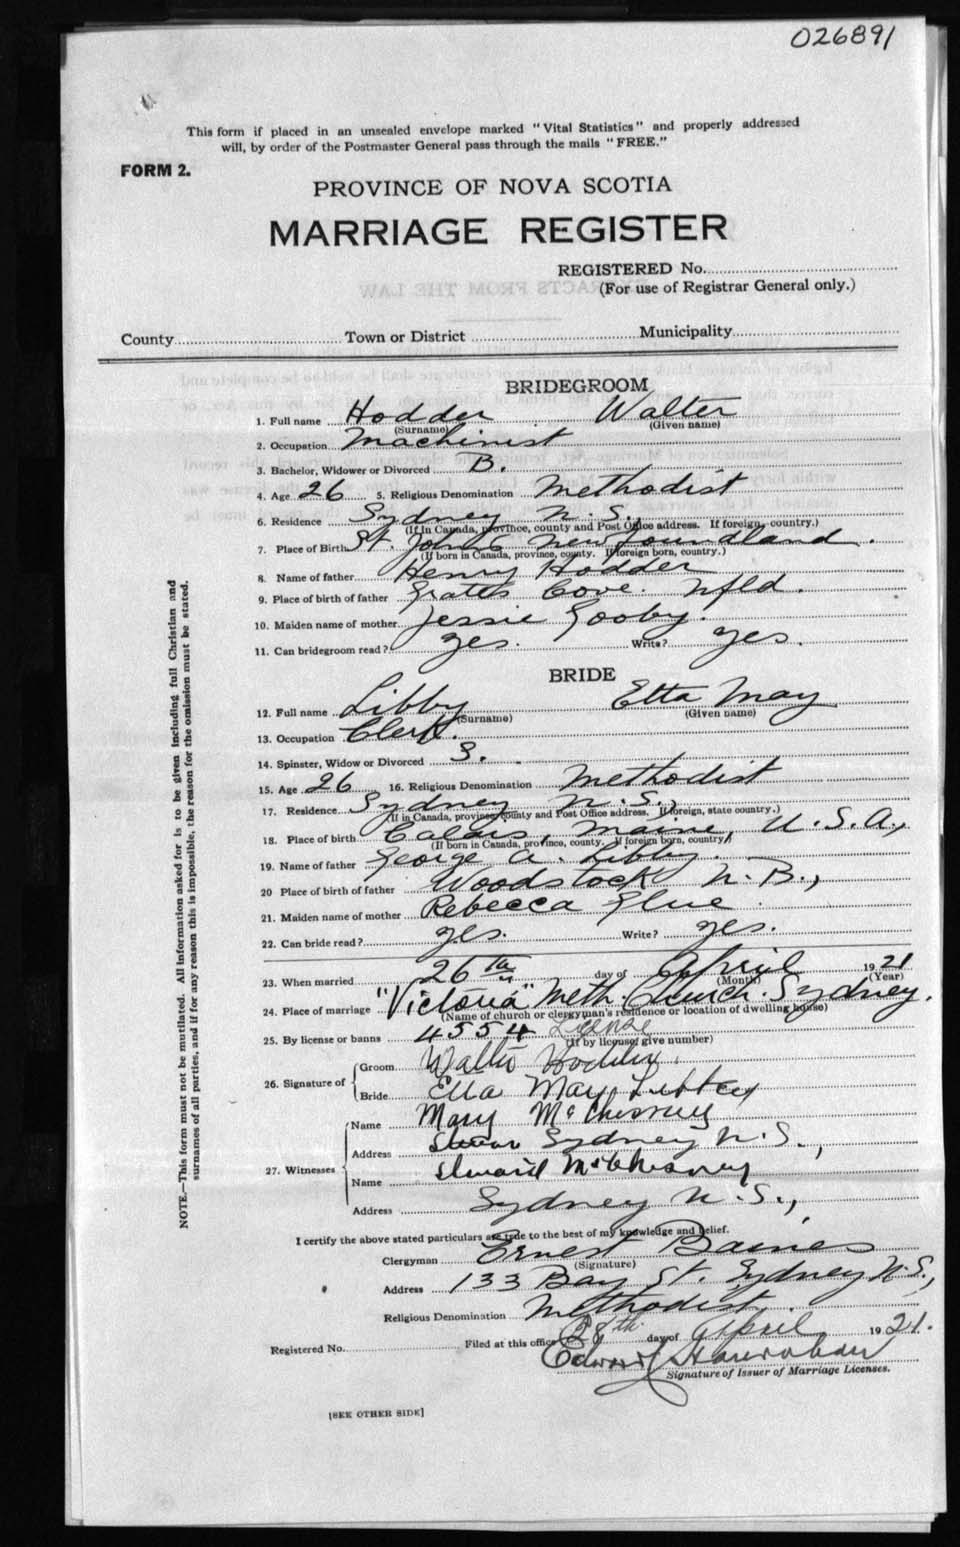 026891
This form if placed in an unsealed envelope marked "Vital Statistics" and properly addressed
will, by order of the Postmaster General pass through the mails "FREE."
FORM 2.
PROVINCE OF NOVA SCOTIA
MARRIAGE REGISTER
REGISTERED No.
(For use of Registrar General only.)
County Town or District Municipality
BRIDEGROOM
1. Full name Hodder Walter
(Surname) (Given name)
2. Occupation Machinist
3. Bachelor, Widower or Divorced B.
4. Age 26 5. Religious Denomination Methodist
6. Residence Sydney N.S.,
(If in Canada, province, county and Post Office address. If foreign, country.)
7. Place of Birth St. Johns Newfoundland.
(If born in Canada, province, county. If foreign born, country.)
8. Name of father Henry Hodder
9. Place of birth of father Grates Cove. Nfld.
10. Maiden name of mother Jessie Gooby.
11. Can bridegroom read? yes. Write? yes.
BRIDE
12. Full name Libby Etta May
(Surname) (Given name)
13. Occupation Clerk.
14. Spinster, Widow or Divorced S.
15. Age 26 16. Religious Denomination Methodist
17. Residence Sydney N.S.,
(If in Canada, province, county and Post Office address. If foreign, state country.)
18. Place of birth Calais, Maine, U.S.A.,
(If born in Canada, province, county. If foreign born, country)
19. Name of father George A. Libby.
20 Place of birth of father Woodstock N.B.,
21. Maiden name of mother Rebecca
22. Can bride read? yes. Write? yes.
23. When married 26th day of April 1921
(Month) (Year)
24. Place of marriage "Victoria" Meth. Church. Sydney.
(Name of church or clergyman's residence or location of dwelling house)
25. By license or banns 4554 License
(If by license, give number)
26. Signature of Groom Walter Hodder
Bride Etta May Libbey
27. Witnesses Name Mary McChesney
Address Sydney N.S.,
Name Edward McChesney
Address Sydney N.S.,
I certify the above stated particulars are true to the best of my knowledge and belief.
Clergyman Ernest Baines
(Signature)
Address 133 Bay St. Sydney N.S.,
Religious Denomination Methodist.
Registered No. Filed at this office 28th day of April 1921.
Edward
Signature of Issuer of Marriage Licenses.
[SEE OTHER SIDE]
NOTE.—This form must not be mutilated. All information asked for is to be given including full Christian and
surnames of all parties, and if for any reason this is impossible, the reason for the omission must be stated.